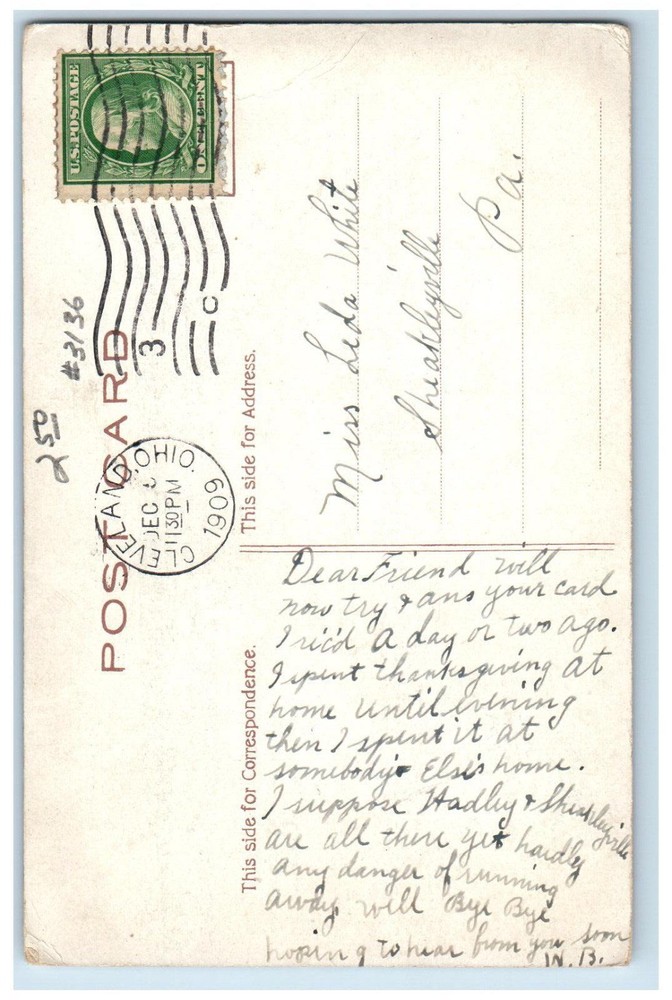 U.S. POSTAGE
ONE CENT
3
C
#3136
2 50
POST CARD
CLEVELAND, OHIO.
DEC
11 30 PM
1909
This side for Address.
Miss Leda White
Sheakleyville
Pa.
This side for Correspondence.
Dear Friend will
now try & ans your card
I rec'd a day or two ago.
I spent thanksgiving at
home until evening
then I spent it at
somebody Else's home.
I suppose Hadley & Sheakleyville
are all there yet hardly
any danger of running
away, will Bye Bye
hoping to hear from you soon
W.B.